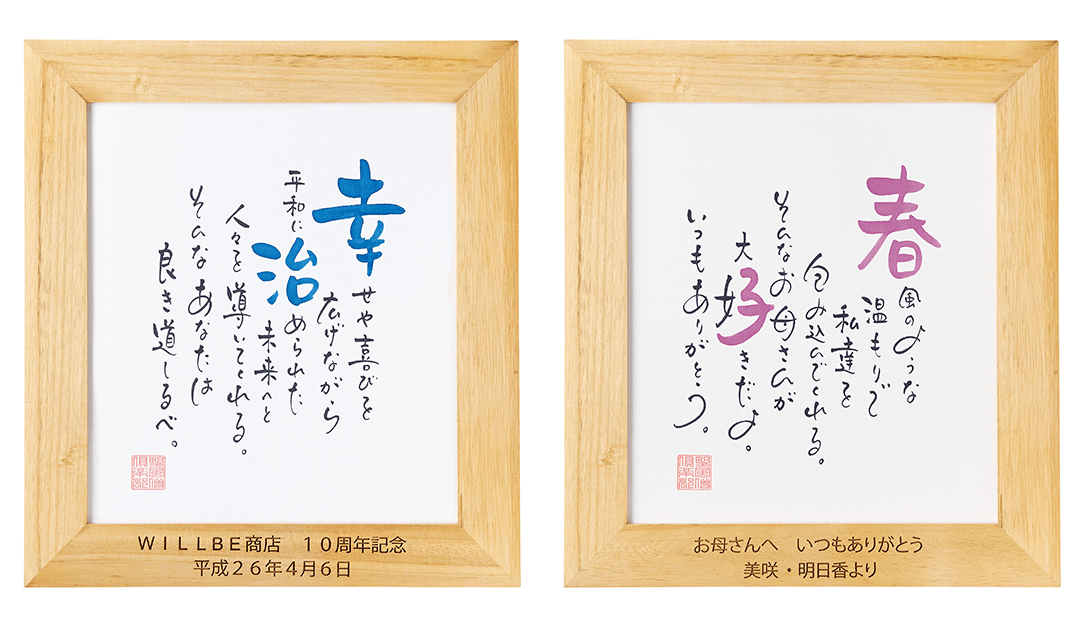 幸せや喜びを
広げながら
平和に治められた
未来へと
人々を導いてくれる。
そんなあなたは
良き道しるべ。
WILLBE商店　10周年記念
平成26年4月6日
春風のような
温もりで
私達を
包み込んでくれる。
そんなお母さんが
大好きだよ。
いつもありがとう。
お母さんへ　いつもありがとう
美咲・明日香より